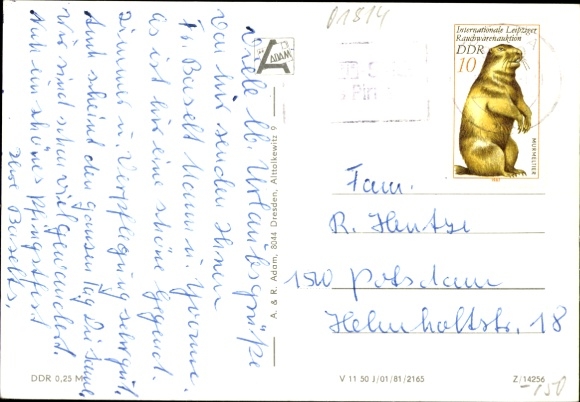 Viele lb. Urlaubsgrüße
von hier senden Ihnen
Fr. Buselt Mann u. Yvonne.
Es ist hier eine schöne Gegend.
Zimmer u. Verpflegung sehr gut.
Auch scheint den ganzen Tag die Sonne.
Wir sind schon viel gewandert.
Nun ein schönes Pfingstfest
Ihre Buselts.
ADAM
A. & R. Adam, 8044 Dresden, Alttolkewitz 9
01814
Internationale Leipziger
Rauchwarenauktion
DDR
10
MURMELTIER
1982
Fam.
R. Hentze
1500 Potsdam
Helmholtzstr. 18
DDR 0,25 M
V 11 50 J/01/81/2165
Z/14256
-150